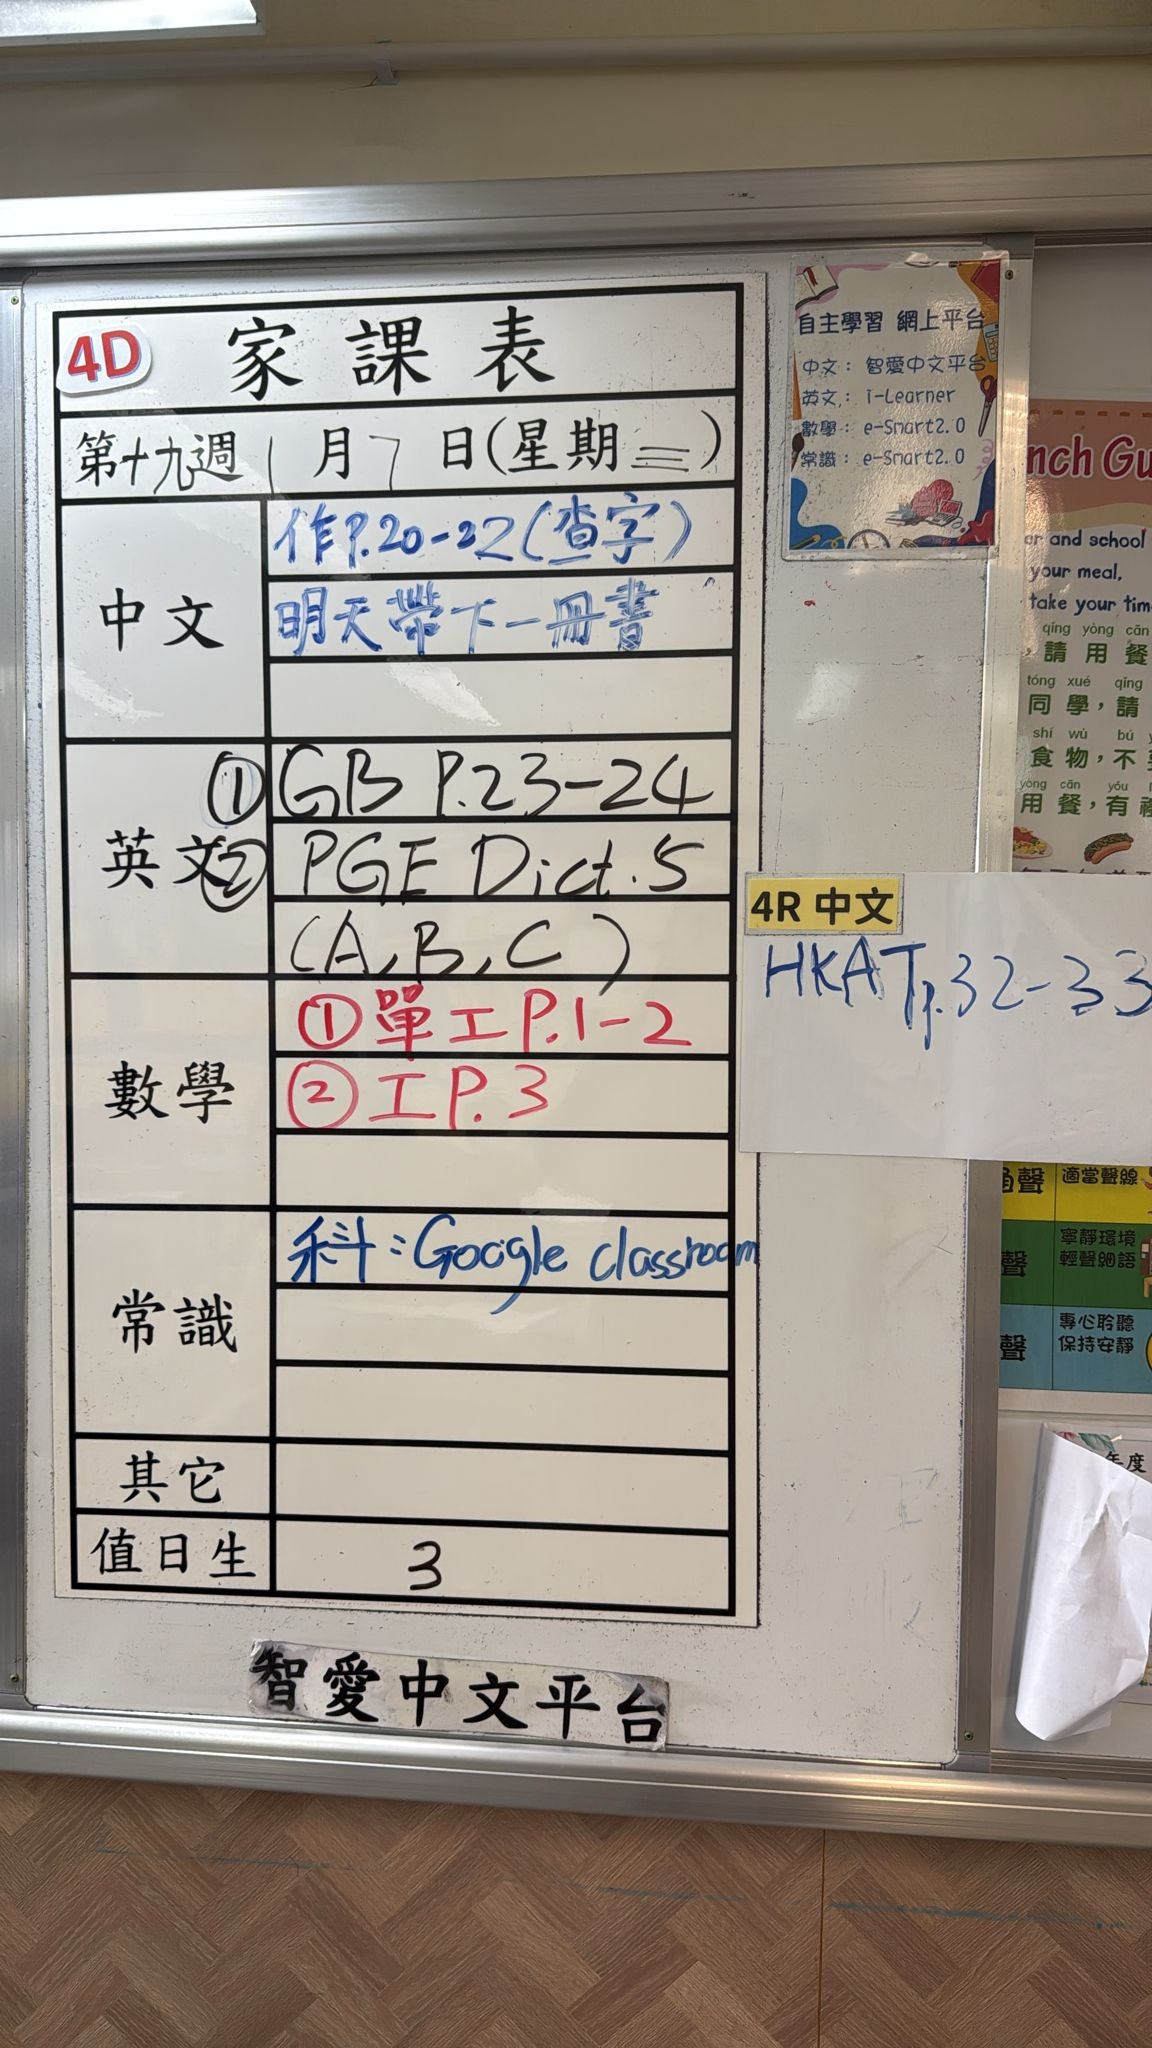 4D 家課表
第十九週 1月7日(星期三)
中文
作P.20-22(查字)
明天帶下一冊書
英文
① GB P.23-24
② PGE Dict.5
(A,B,C)
數學
①單工P.1-2
②工P.3
常識
科:Google classroom
其它
值日生
3
智愛中文平台
自主學習 網上平台
中文: 智愛中文平台
英文: i-Learner
數學: e-Smart2.0
常識: e-Smart2.0
nch Gu
er and school
your meal,
take your tim
qǐng yòng cān
請用餐
tóng xué qǐng
同學,請
shí wù bú
食物,不
yòng cān yǒu
用餐,有禮
4R 中文
HKAT p.32-33
聲 適當聲線
聲 寧靜環境
輕聲細語
聲 專心聆聽
保持安靜
年度